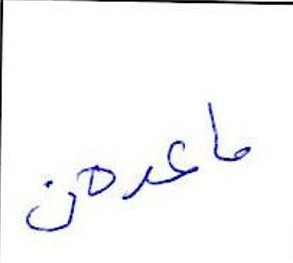 ما عدهن